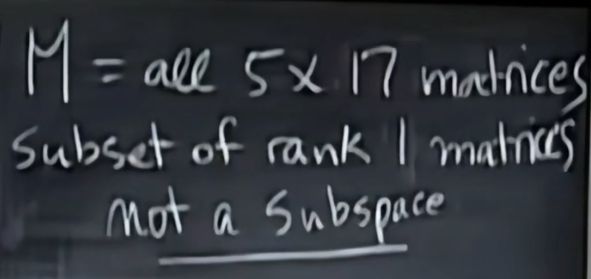 M = all 5 x 17 matrices
subset of rank 1 matrices
not a subspace